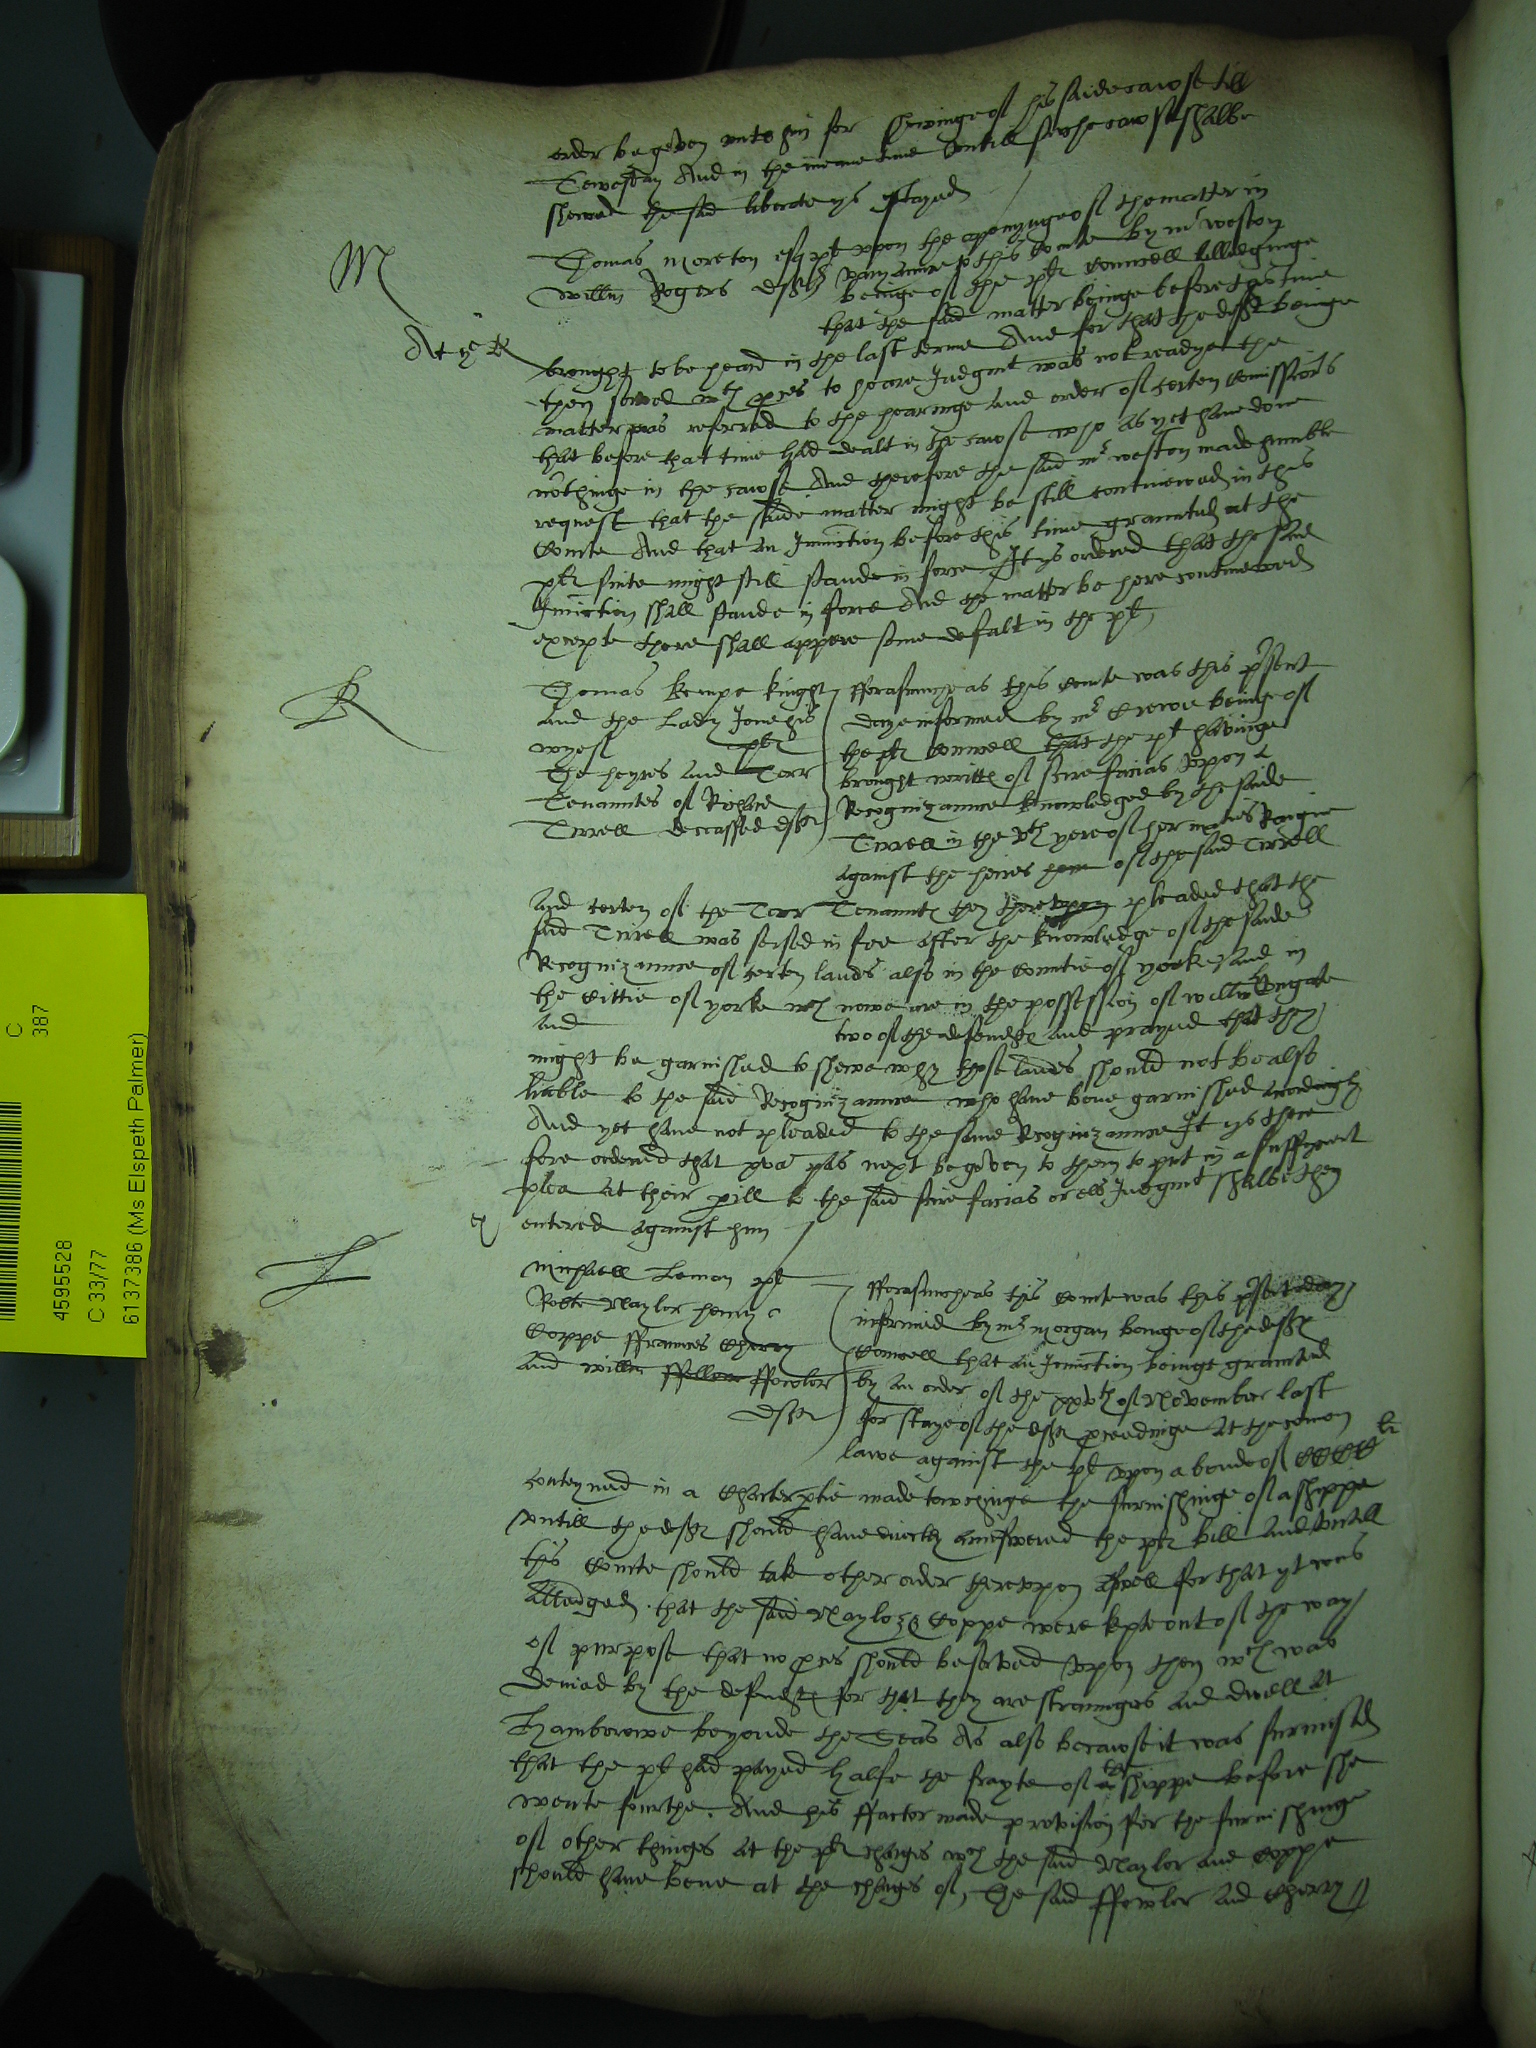 order be geven unto him for shewinge of his saide cawse till
Tewesday And in the meane time untill suche cawse shalbe
shewed the said liberate ys stayed
M
Thomas Moreton esq pt
Willm Rogers deft
upon the openynge of the matter in
this Courte by mr Weston
beinge of the pts Councell alledginge
that the said matter beinge before this time
brought to be heard in the last terme And for that the deft beinge
then served wth pces to heare Judgmt was not readye the
matter was referred to the hearinge and order of certen Comissiors
that before that time had dealt in the cawse who as yet have done
nothinge in the cawse And therefore the said mr Weston made humble
request that the saide matter might be still contynewed in this
Courte And that an Iniunction before this time graunted at the
pts suite might still stande in force It ys ordered that the said
Iniunction shall stande in force And the matter be here contynewed
excepte there shall appere some defalt in the pt
K
Thomas Kempe knight
and the Lady Jone his
wyef pts
The heyres and Terr
Tenanntes of Richard
Tirrell deceassed defts
fforasmuche as this Courte was this p'sent
daye informed by mr Crewe beinge of
the pts Councell that the pt havinge
brought writte of scire facias upon a
Recognizaunce knowledged by the saide
Tirrell in the vth yere of her maties Raigne
against the heires of the said Tirrell
and certen of the Terr Tenannts they thereupon pleaded that the
said Tirrell was seised in fee after the knowledge of the saide
Recognizaunce of certen lands also in the Countie of Yorke And in
the Cittie of Yorke wch nowe are in the possession of Willm Vngate
and two of the defendts and prayed that they
might be garnished to shewe why those lands should not be also
liable to the said Recognizaunce who have bene garnished accordingly
And yet have not pleaded to the same Recognizaunce It ys there
fore ordered that daye be geven to them to put in a suffycient
plea at their perill to the said scire facias or els Judgmt shalbe then
ex
entered against him
L
Michaell Leman pt
Robte Naylor henry
Coppe ffraunces Cherry
and Willm ffowler
defts
fforasmuche as this Courte was this p'sent daye
informed by mr Morgan beinge of the defts
Councell that an Iniunction beinge graunted
by an order of the xxvth of November last
for staye of the defts proceedinge at the comon
lawe against the pt upon a bonde of CCCC li
conteyned in a Charterptie made towchinge the furnishinge of a shippe
untill the defts should have directly aunswered the pts bill and untill
this Courte should take other order thereupon aswell for that yt was
alledged that the said Naylor & Coppe were kepte out of the waye
of purpose that no pces should be served upon them wch was
denied by the defendts for that they are straungers and dwell at
Hamborowe beyonde the Seas As also because it was surmised
that the pt had payed halfe the frayte of the shippe before she
wente fourthe. And his ffactor made provision for the furnishinge
of other thinges at the pts charges wch the said Naylor and Coppe
should have bene at the charges of, The said ffowler and Cherry
C
387
4595528
C 33/77
6137386 (Ms Elspeth Palmer)